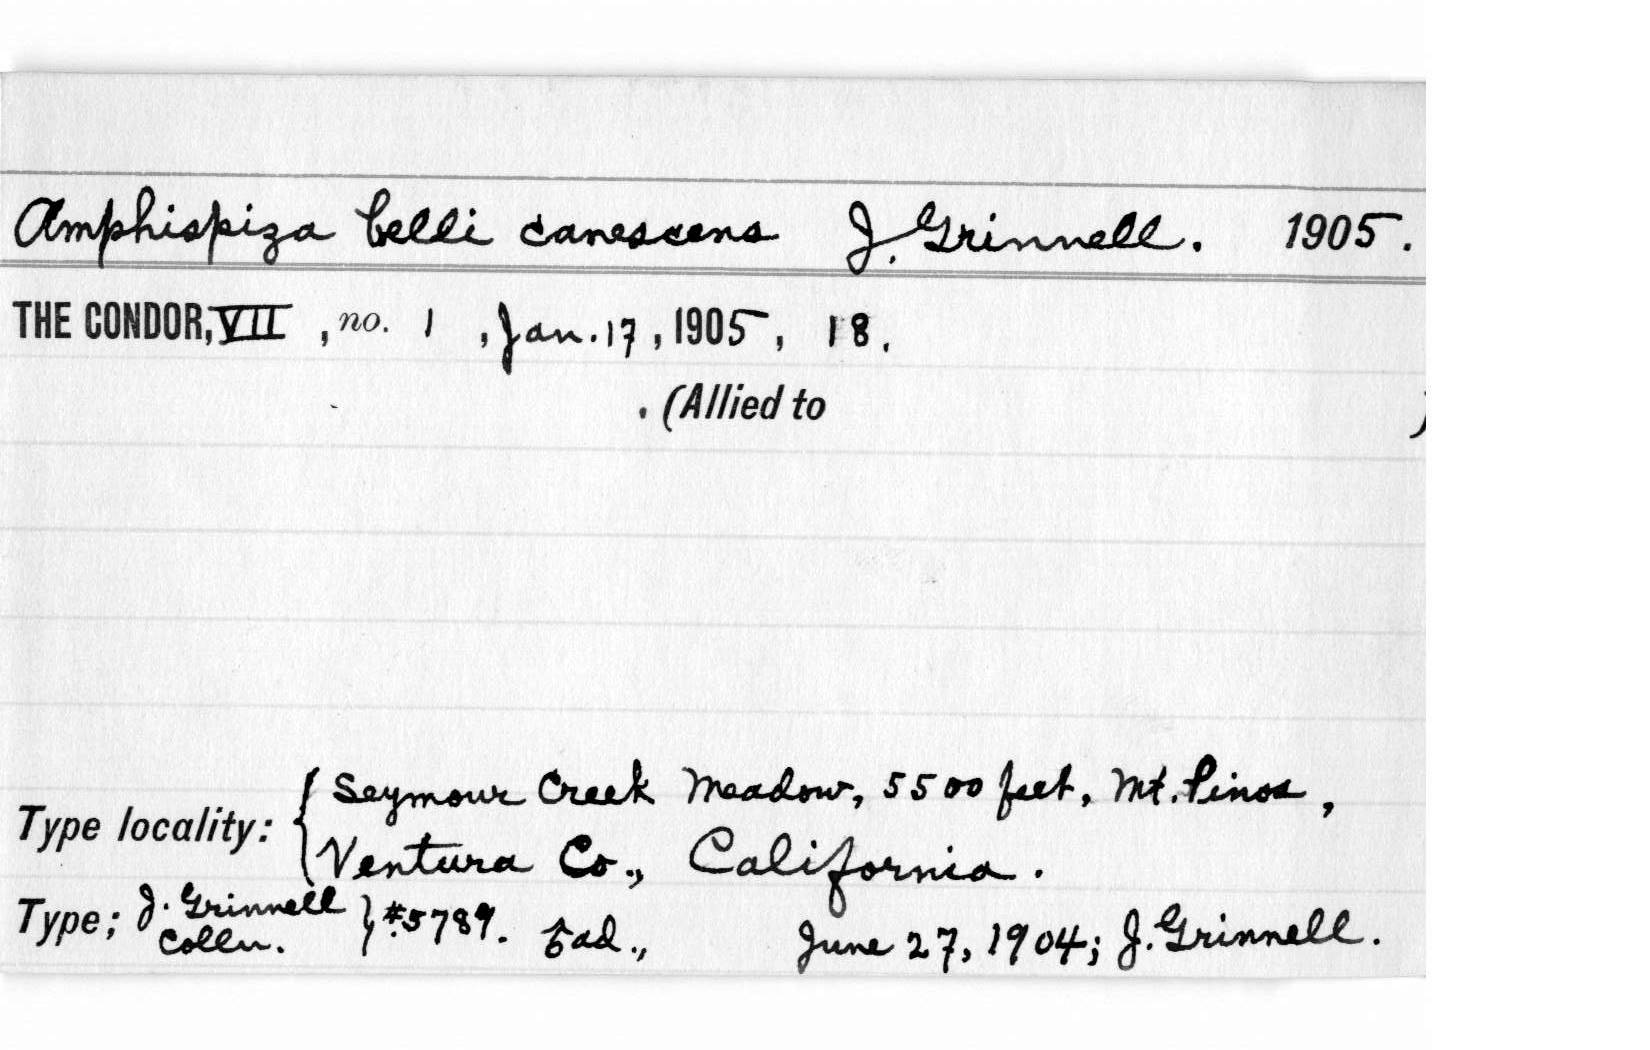 Amphispiza belli canescens J. Grinnell. 1905.
THE CONDOR, VII, no. 1, Jan. 17, 1905, 18.
. (Allied to )
Type locality: { Seymour Creek Meadow, 5500 feet, Mt. Pinos,
Ventura Co., California.
Type; J. Grinnell Colln. } #5789. ad., June 27, 1904; J. Grinnell.